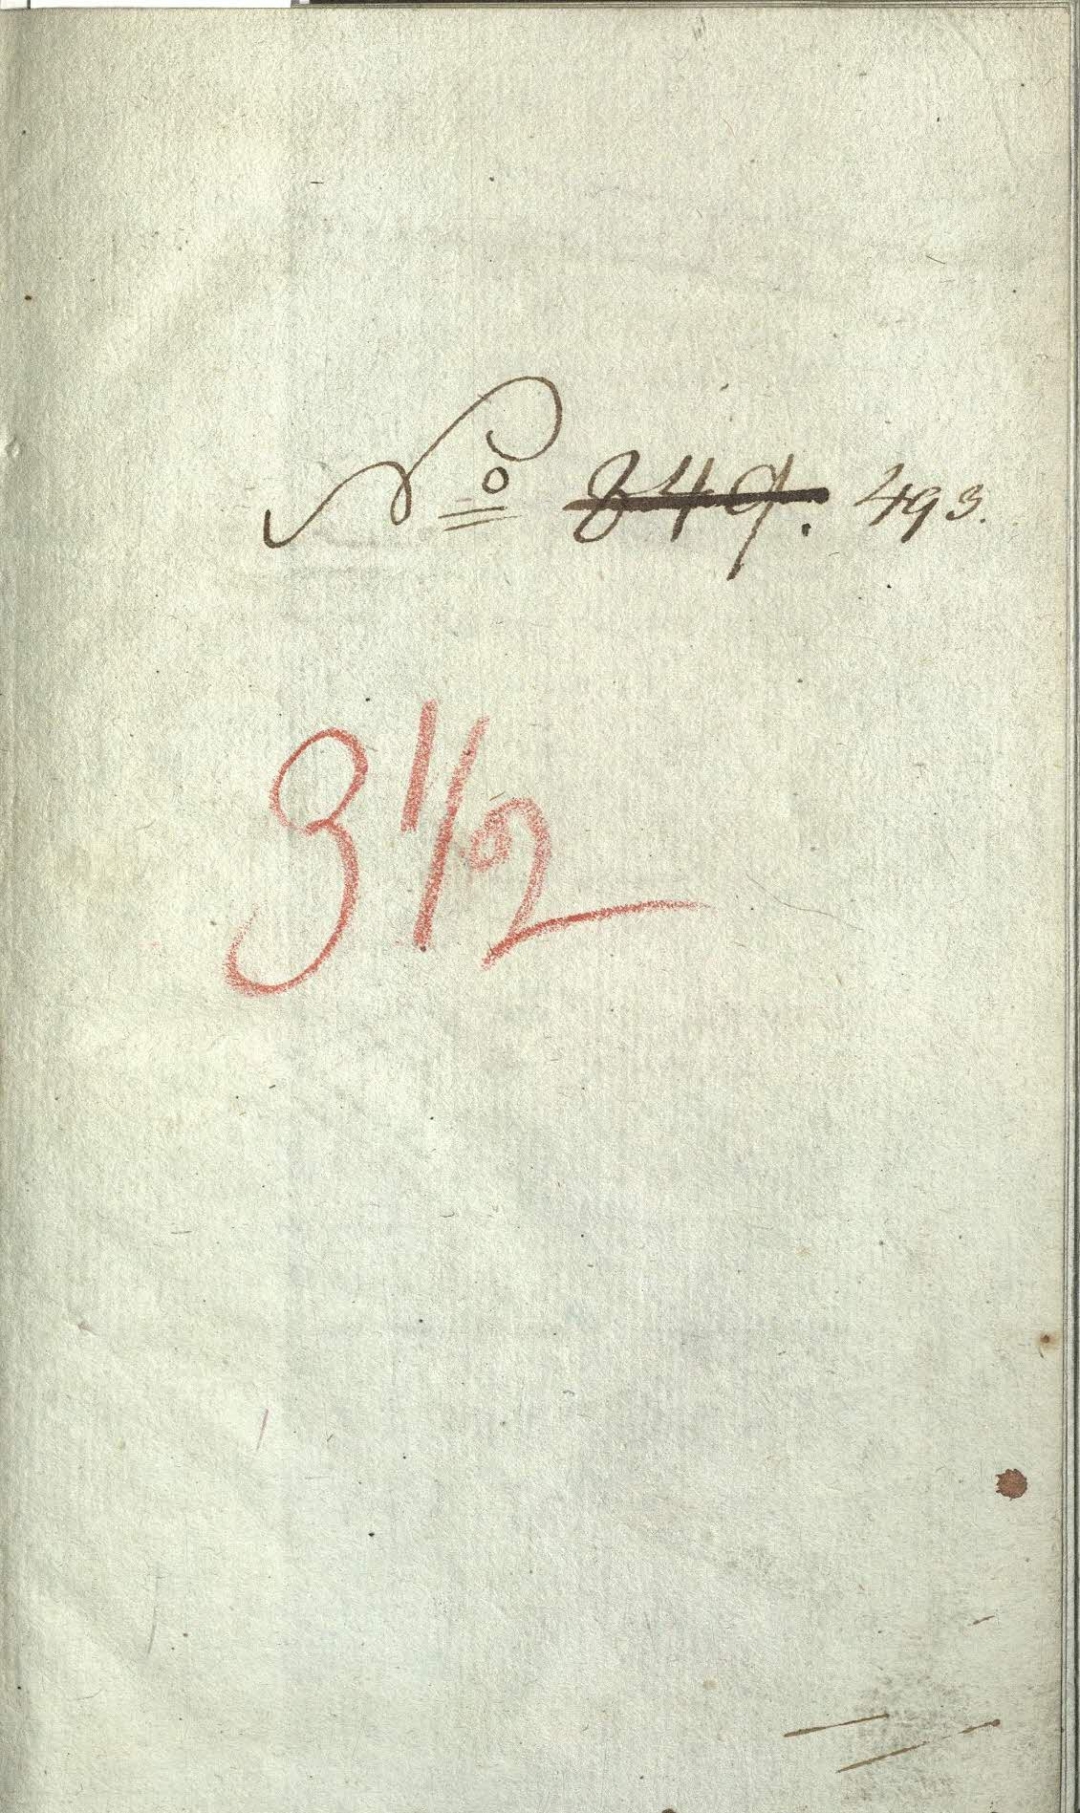 Nº 849. 493.
3 1/2